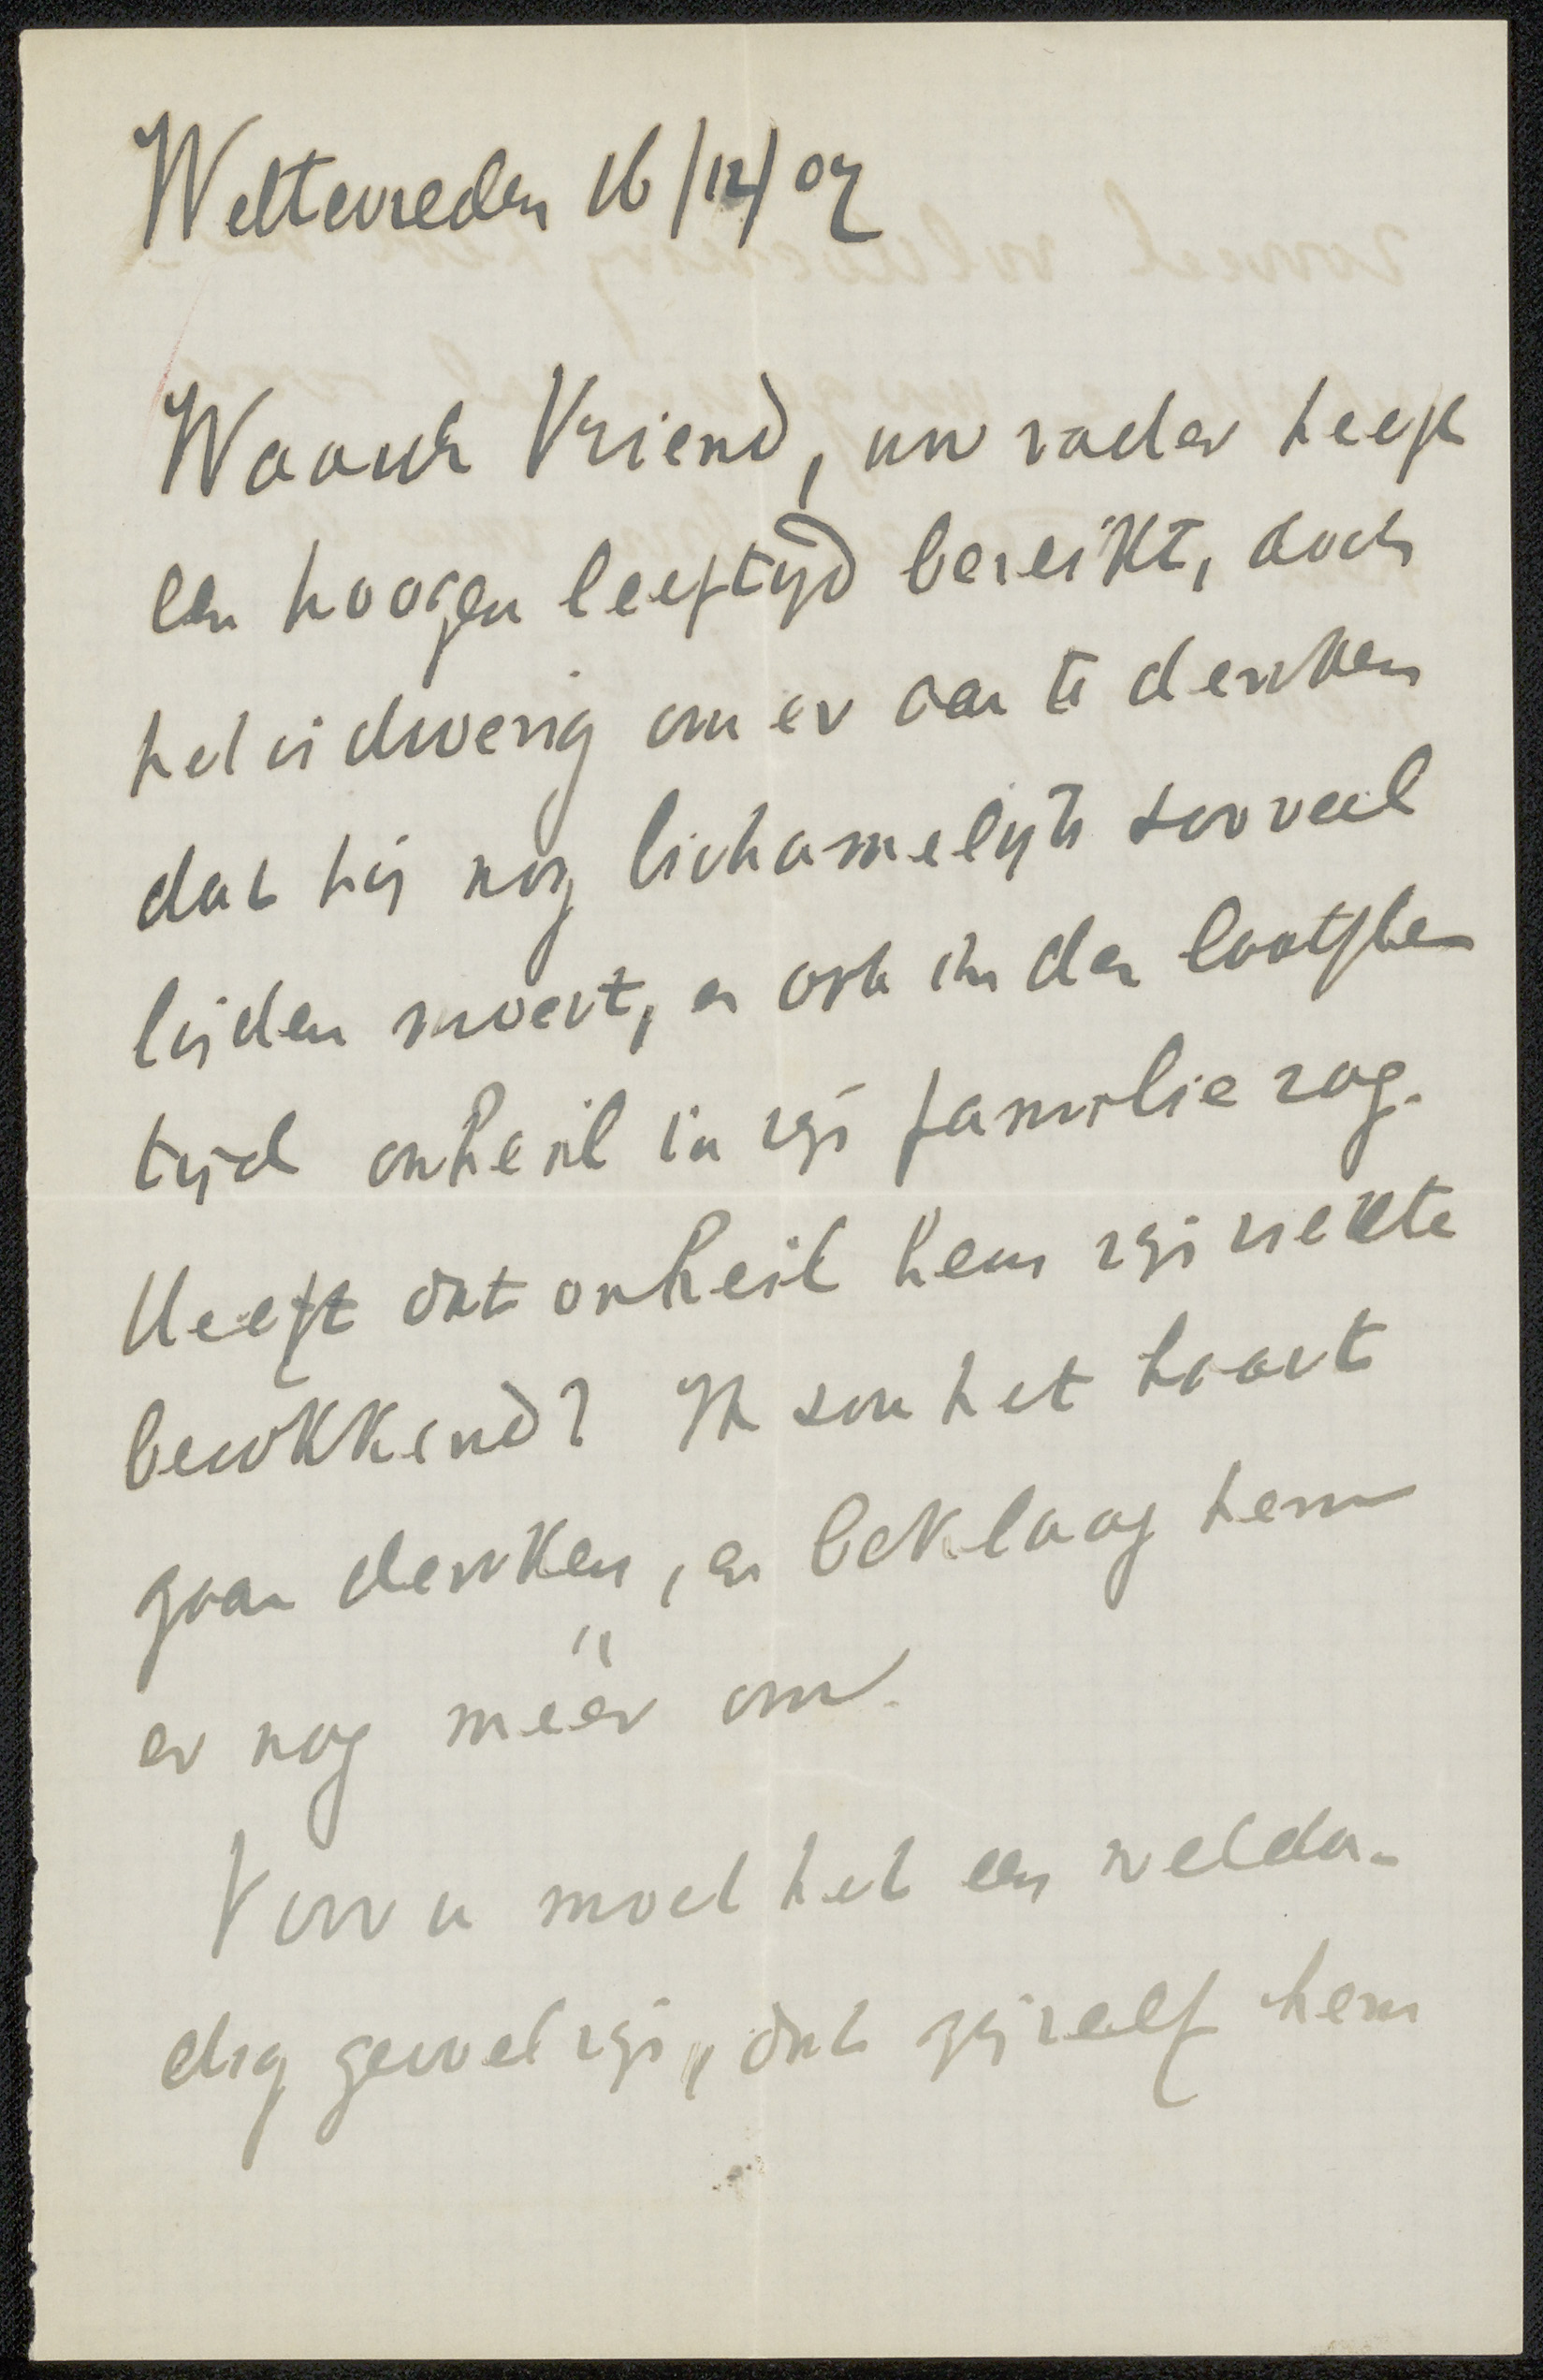 Weltevreden 16/12/07
Waarde Vriend, uw vader heeft
een hoogen leeftijd bereikt, doch
het is droevig om er aan te denken
dat hij nog lichamelijk zooveel
lijden moest, en ook in den laatsten
tijd onheil in zijn familie zag.
Heeft dat onheil hem zijn ziekte
berokkend? Ik zou het haast
gaan denken, en beklaag hem
er nog méér om.
Voor u moet het een welda-
dig gevoel zijn, dat gijzelf hem